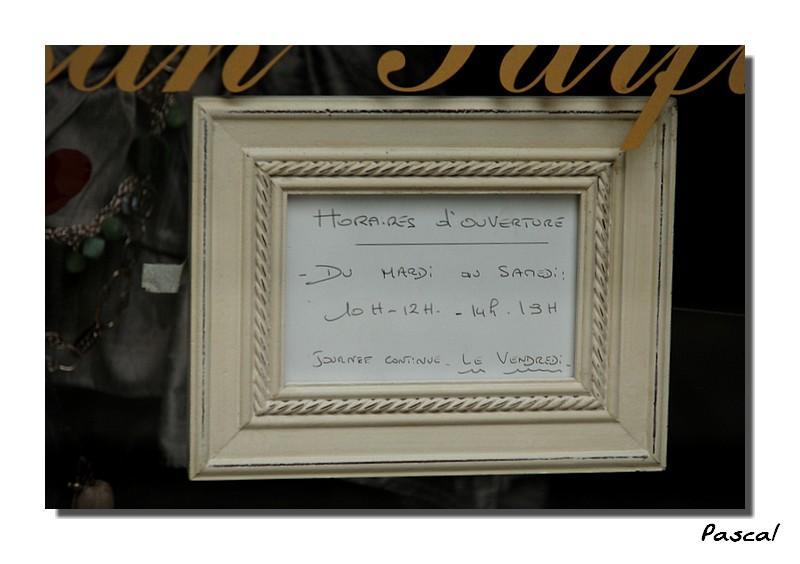 Horaires d'ouverture
- Du mardi au samedi:
10H-12H. - 14h. 19H
Journee continue. Le Vendredi.
Pascal